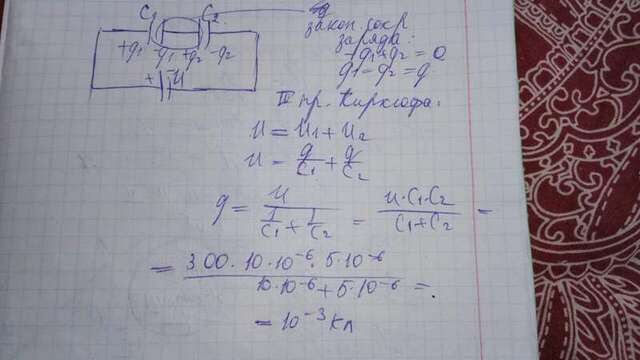 C1 C2
закон сохр
заряда:
-q1+q2=0
q1=q2=q
+q1 -q1 +q2 -q2
+ - U
II пр. Кирхгофа:
U = U1 + U2
U = q/C1 + q/C2
q = U/(1/C1 + 1/C2) = U·C1·C2/(C1+C2) =
= 300·10·10^-6·5·10^-6/(10·10^-6+5·10^-6) =
= 10^-3 Кл